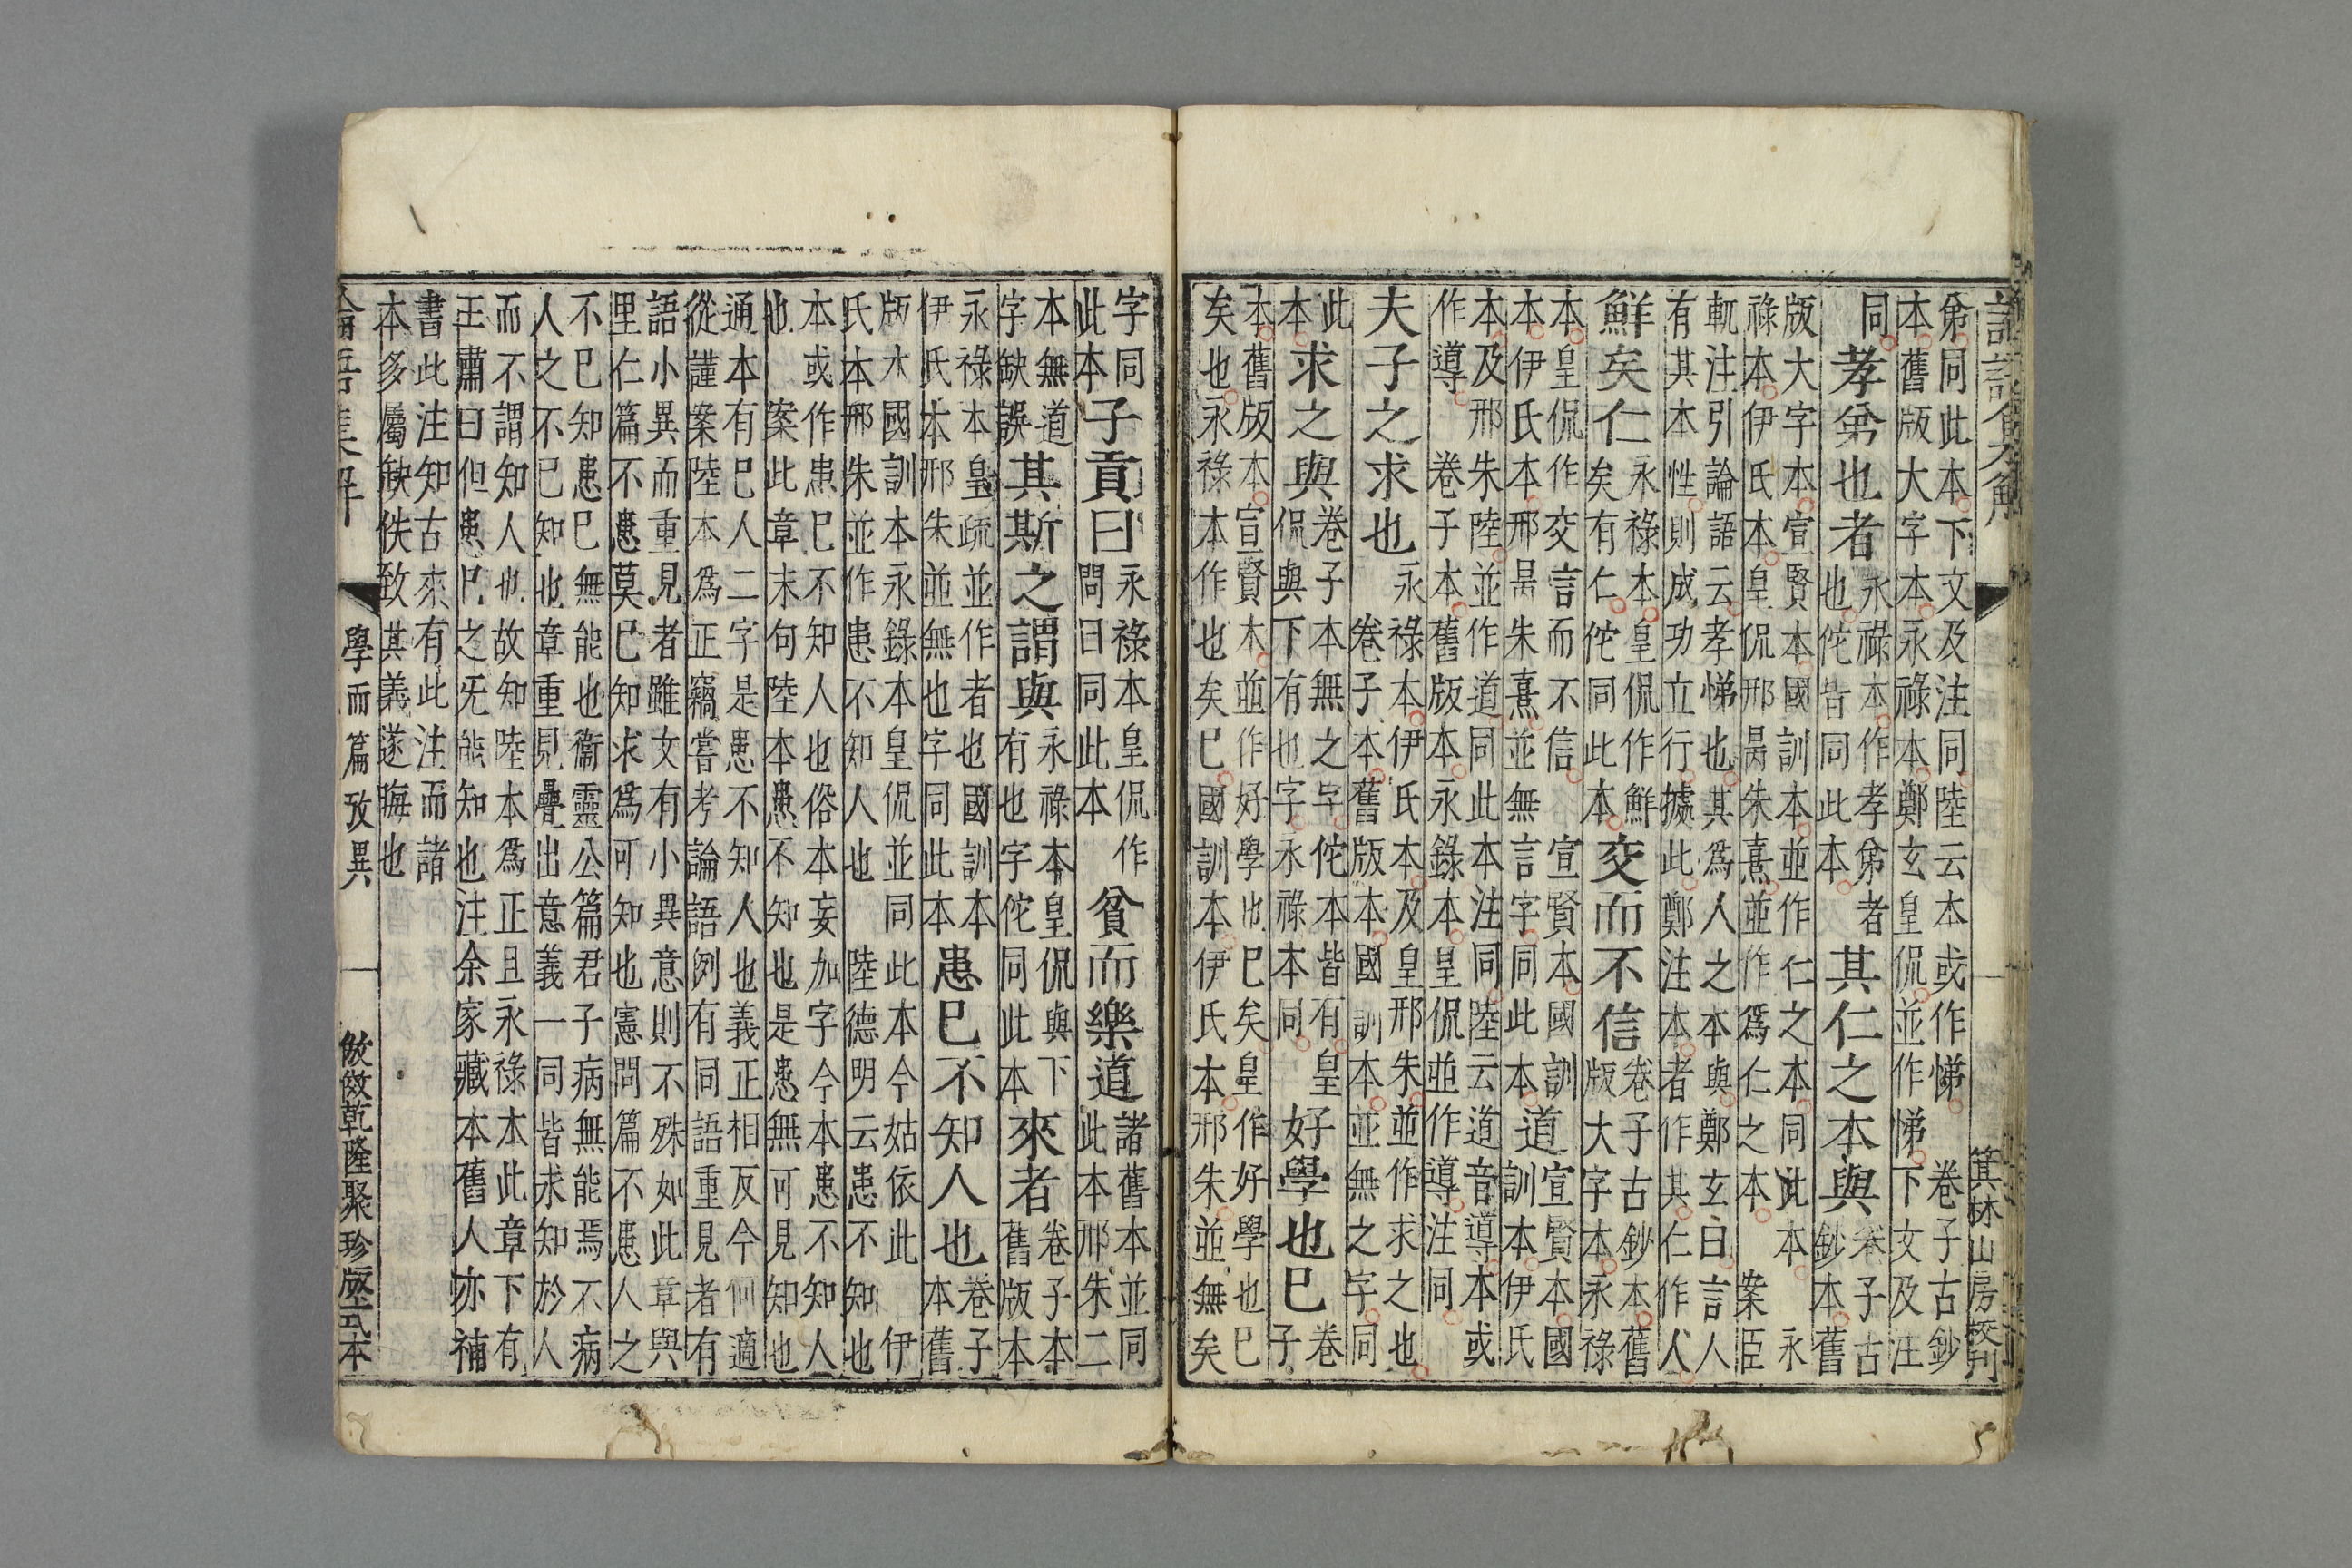 箕林山房校刊
弟同此本下文及注同陸云本或作悌　卷子古鈔
本舊版大字本永祿本鄭玄皇侃並作悌下文及注
同
孝弟也者
永祿本作孝弟者
也佗皆同此本
其仁之本與
卷子古
鈔本舊
版大字本宣賢本國訓本並作仁之本同此本　永
祿本伊氏本皇侃邢昺朱熹並作爲仁之本　案臣
軌注引論語云孝悌也其爲人之本與鄭玄曰言人
有其本性則成功立行據此鄭注本者作其仁作人
鮮矣仁
永祿本皇侃作鮮
矣有仁佗同此本
交而不信
卷子古鈔本舊
版大字本永祿
本皇侃作交言而不信　宣賢本國訓
本伊氏本邢昺朱熹並無言字同此本
道
宣賢本國
訓本伊氏
本及邢朱陸並作道同此本注同陸云道音導本或
作導　卷子本舊版本永錄本皇侃並作導注同
夫子之求也
永祿本伊氏本及皇邢朱並作求之也
卷子本舊版本國訓本並無之字同
此
本
求之與
卷子本無之字佗本皆有皇
侃與下有也字永祿本同
好學也已
卷
子
本舊版本宣賢本並作好學也已矣皇作好學也已
矣也永祿本作也矣已國訓本伊氏本邢朱並無矣
字同
此本
子貢曰
永祿本皇侃作
問曰同此本
貧而樂道
諸舊本並同
此本邢朱二
本無道
字缺誤
其斯之謂與
永祿本皇侃與下
有也字佗同此本
來者
卷子本
舊版本
永祿本皇疏並作者也國訓本
伊氏本邢朱並無也字同此本
患已不知人也
卷子
本舊
版本國訓本永錄本皇侃並同此本今姑依此　伊
氏本邢朱並作患不知人也　陸德明云患不知也
本或作患已不知人也俗本妄加字今本患不知人
也　案此章末句陸本患不知也是患無可見知也
通本有已人二字是患不知人也義正相反今何適
從謹案陸本爲正竊嘗考論語例有同語重見者有
語小異而重見者雖文有小異意則不殊如此章與
里仁篇不患莫已知求爲可知也憲問篇不患人之
不已知患已無能也衞靈公篇君子病無能焉不病
人之不已知也章重見疊出意義一同皆求知於人
而不謂知人也故知陸本爲正且永祿本此章下有
王肅曰但患已之无能知也注余家藏本舊人亦補
書此注知古來有此注而諸
本多屬缺佚致其義遂晦也
論語集解　學而篇攷異　一　倣傚乾隆聚珍版式本